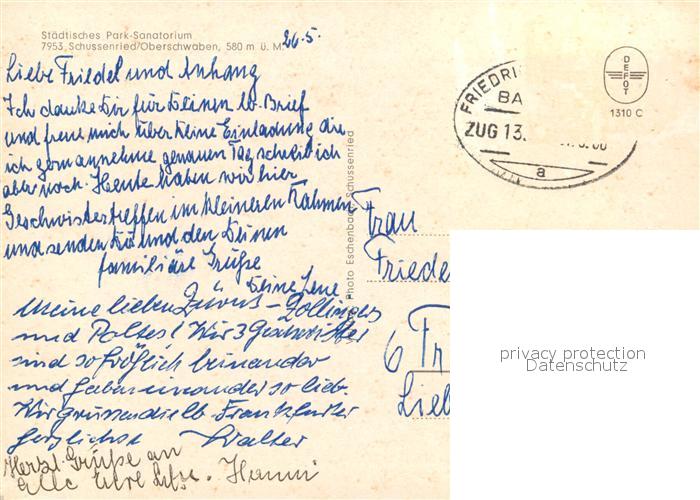 Städtisches Park-Sanatorium
7953 Schussenried/Oberschwaben, 580 m ü. M.
26.5.
Liebe Friedel und Anhang
Ich danke Dir für Deinen lb. Brief
und freue mich über Deine Einladung die
ich gern annehme genauen Tag schreib ich
aber noch. Heute haben wir hier
Geschwistertreffen im kleineren Rahmen
und senden Dir und den Deinen
familiäre Grüße
Deine Lene
Meine lieben Zollingers
und Wir 3 Geschwister
sind so fröhlich beinander
und haben einander so lieb.
Wir grüssen die lb. Frankfurter
herzlichst Walter
Herzl. Grüße an
alle Eure Hanni
Photo Eschenbach, Schussenried
DEFOT
1310 C
FRIEDRI
BA
ZUG 13.
a
Frau
Friede
6 Fr
Lieb
privacy protection
Datenschutz